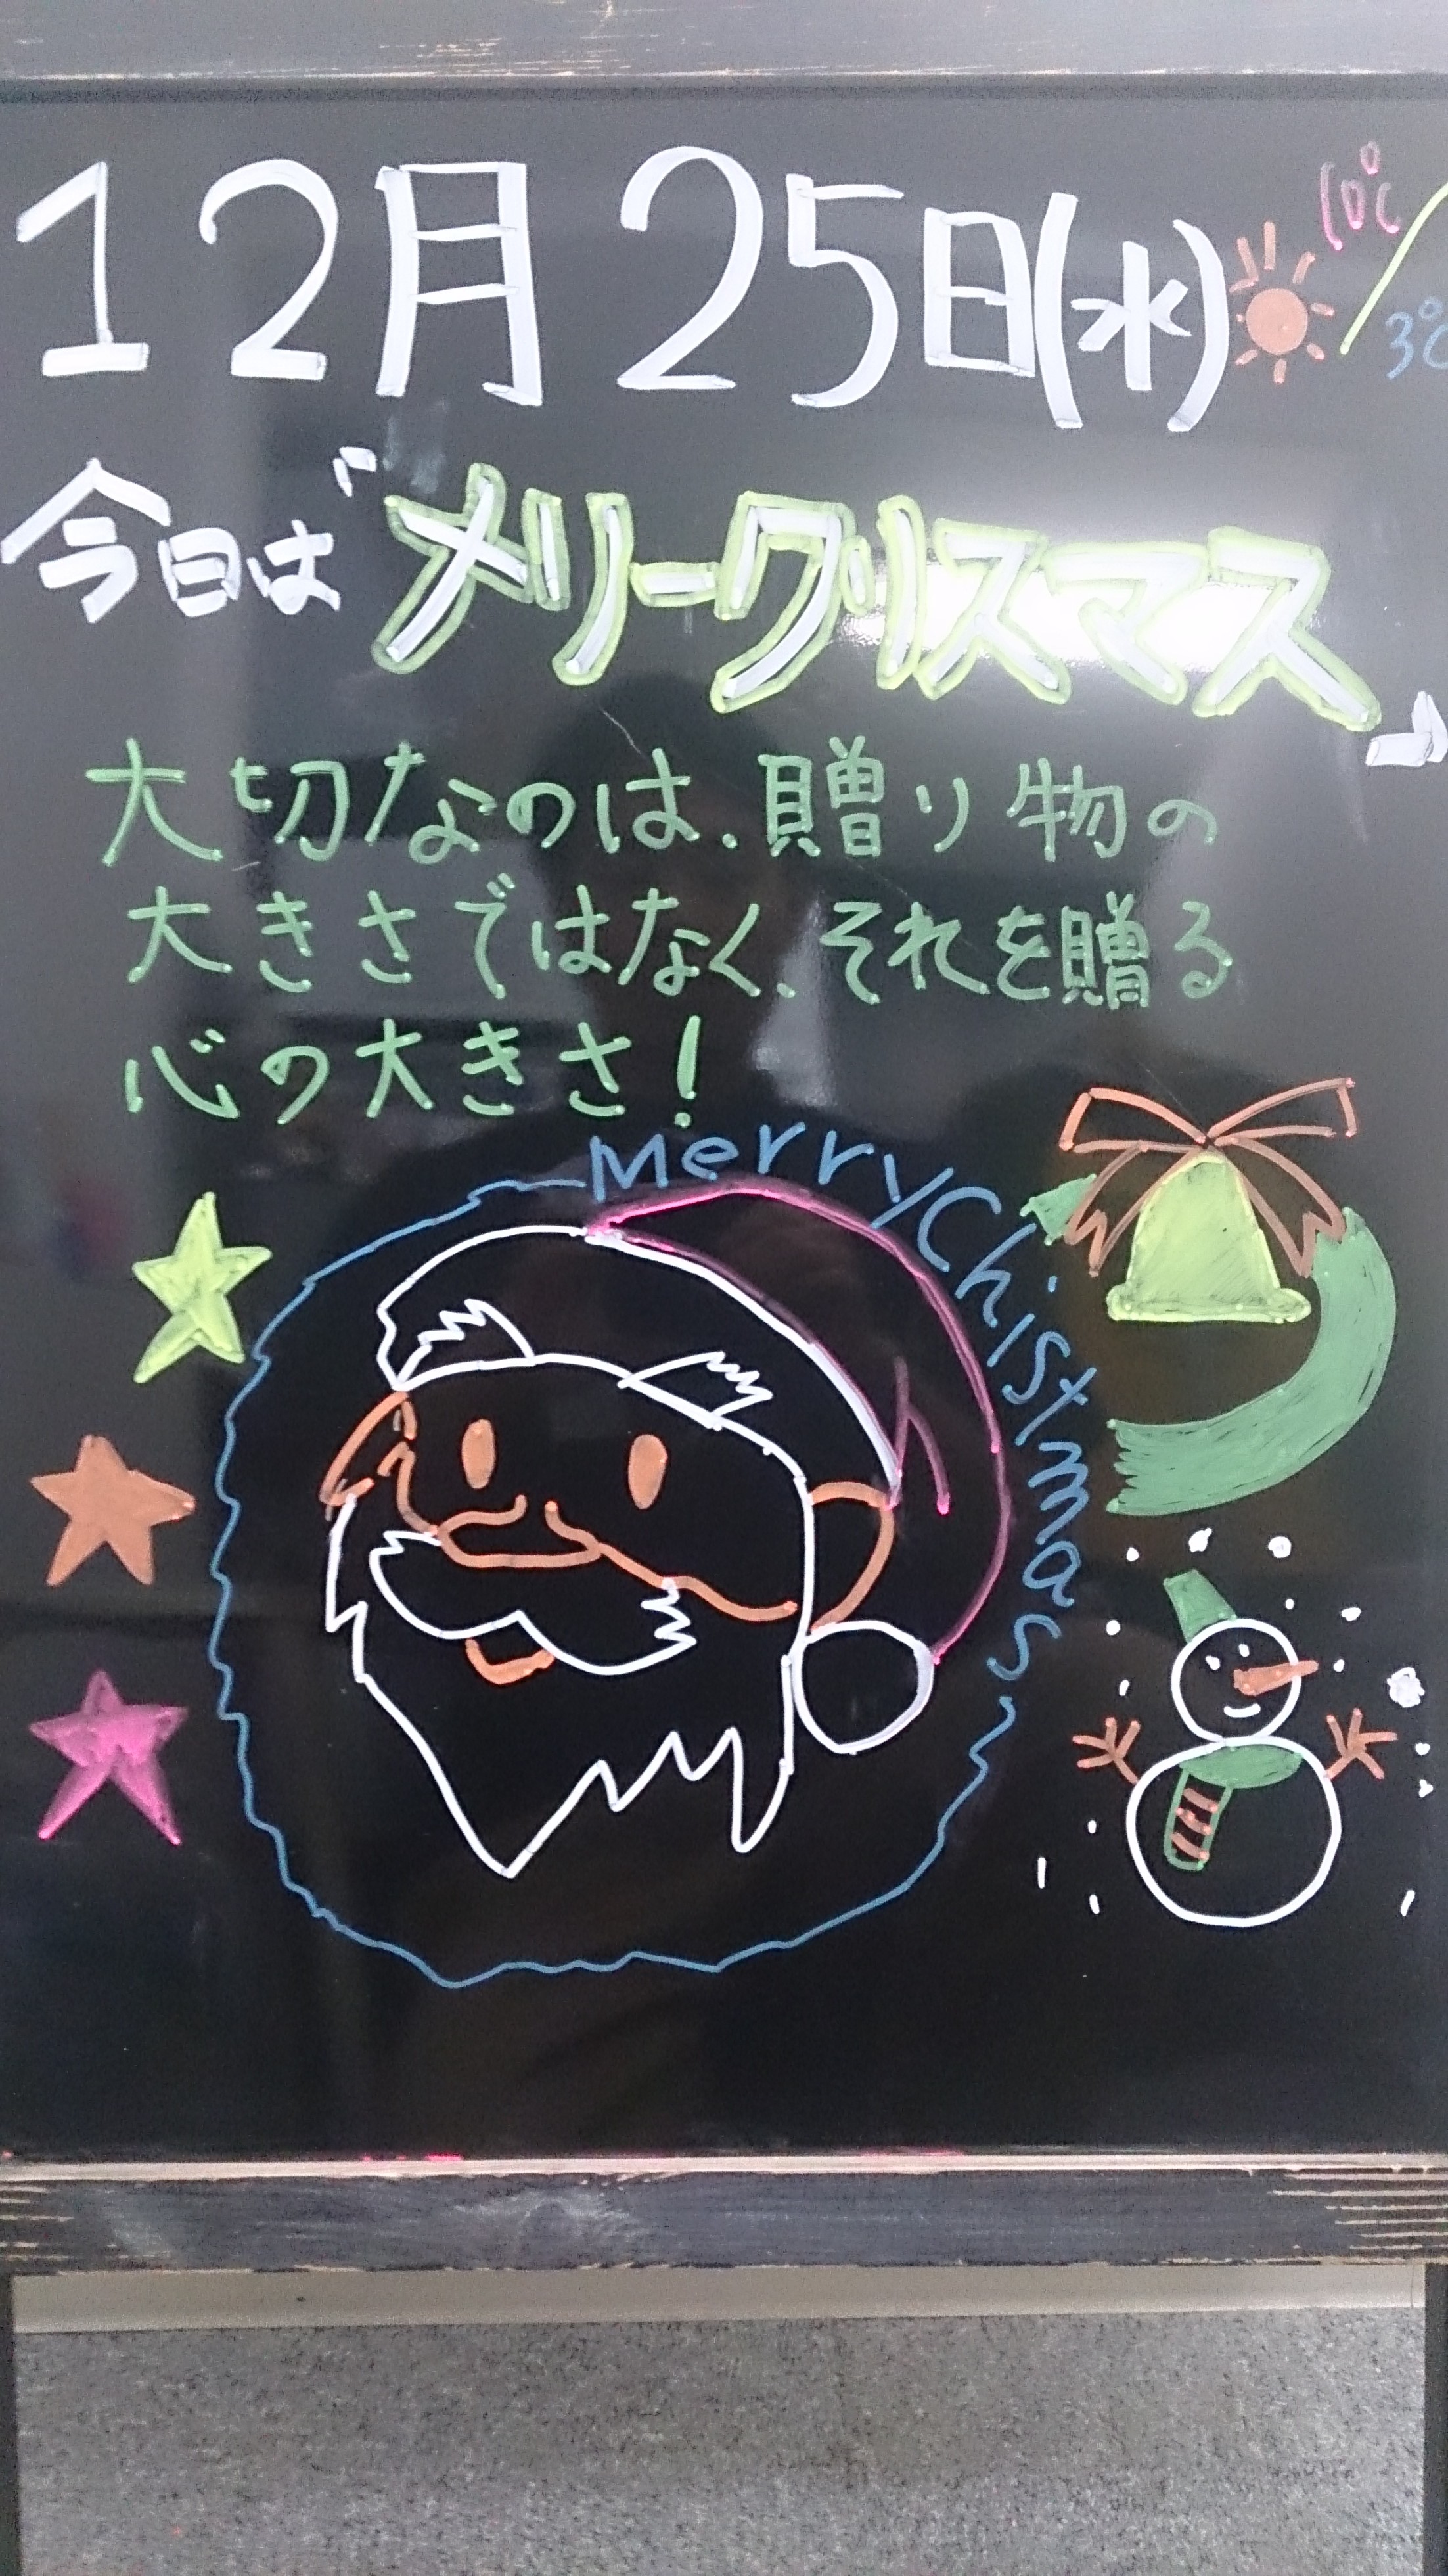 12月25日(水) 10℃/3℃
今日は「メリークリスマス」
大切なのは、贈り物の
大きさではなく、それを贈る
心の大きさ!
MerryChistmas